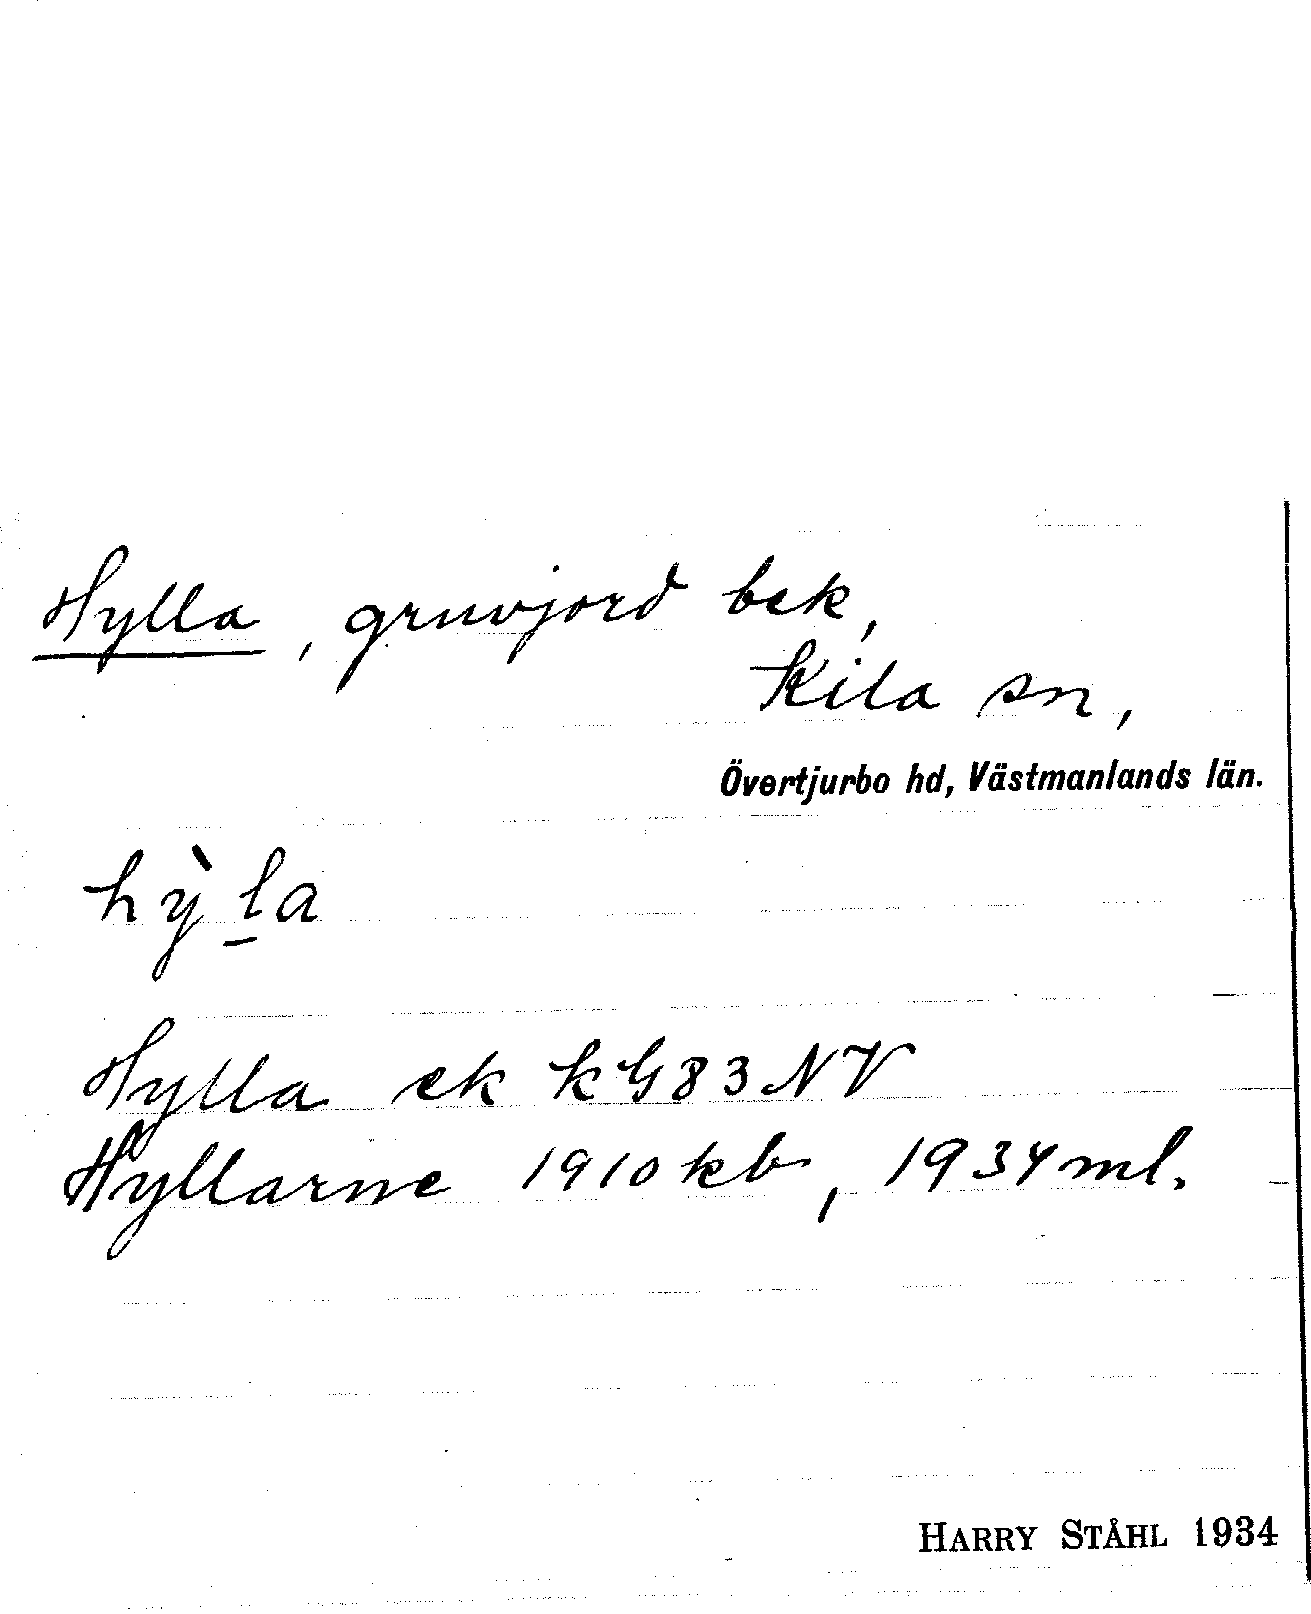 Hylla, gruvjord bek,
Kila sn,
Övertjurbo hd, Västmanlands län.
hỳl̲a
Hylla ek kG 83 NV
Hyllarne 1910 kb, 1934 ml.
HARRY STÅHL 1934